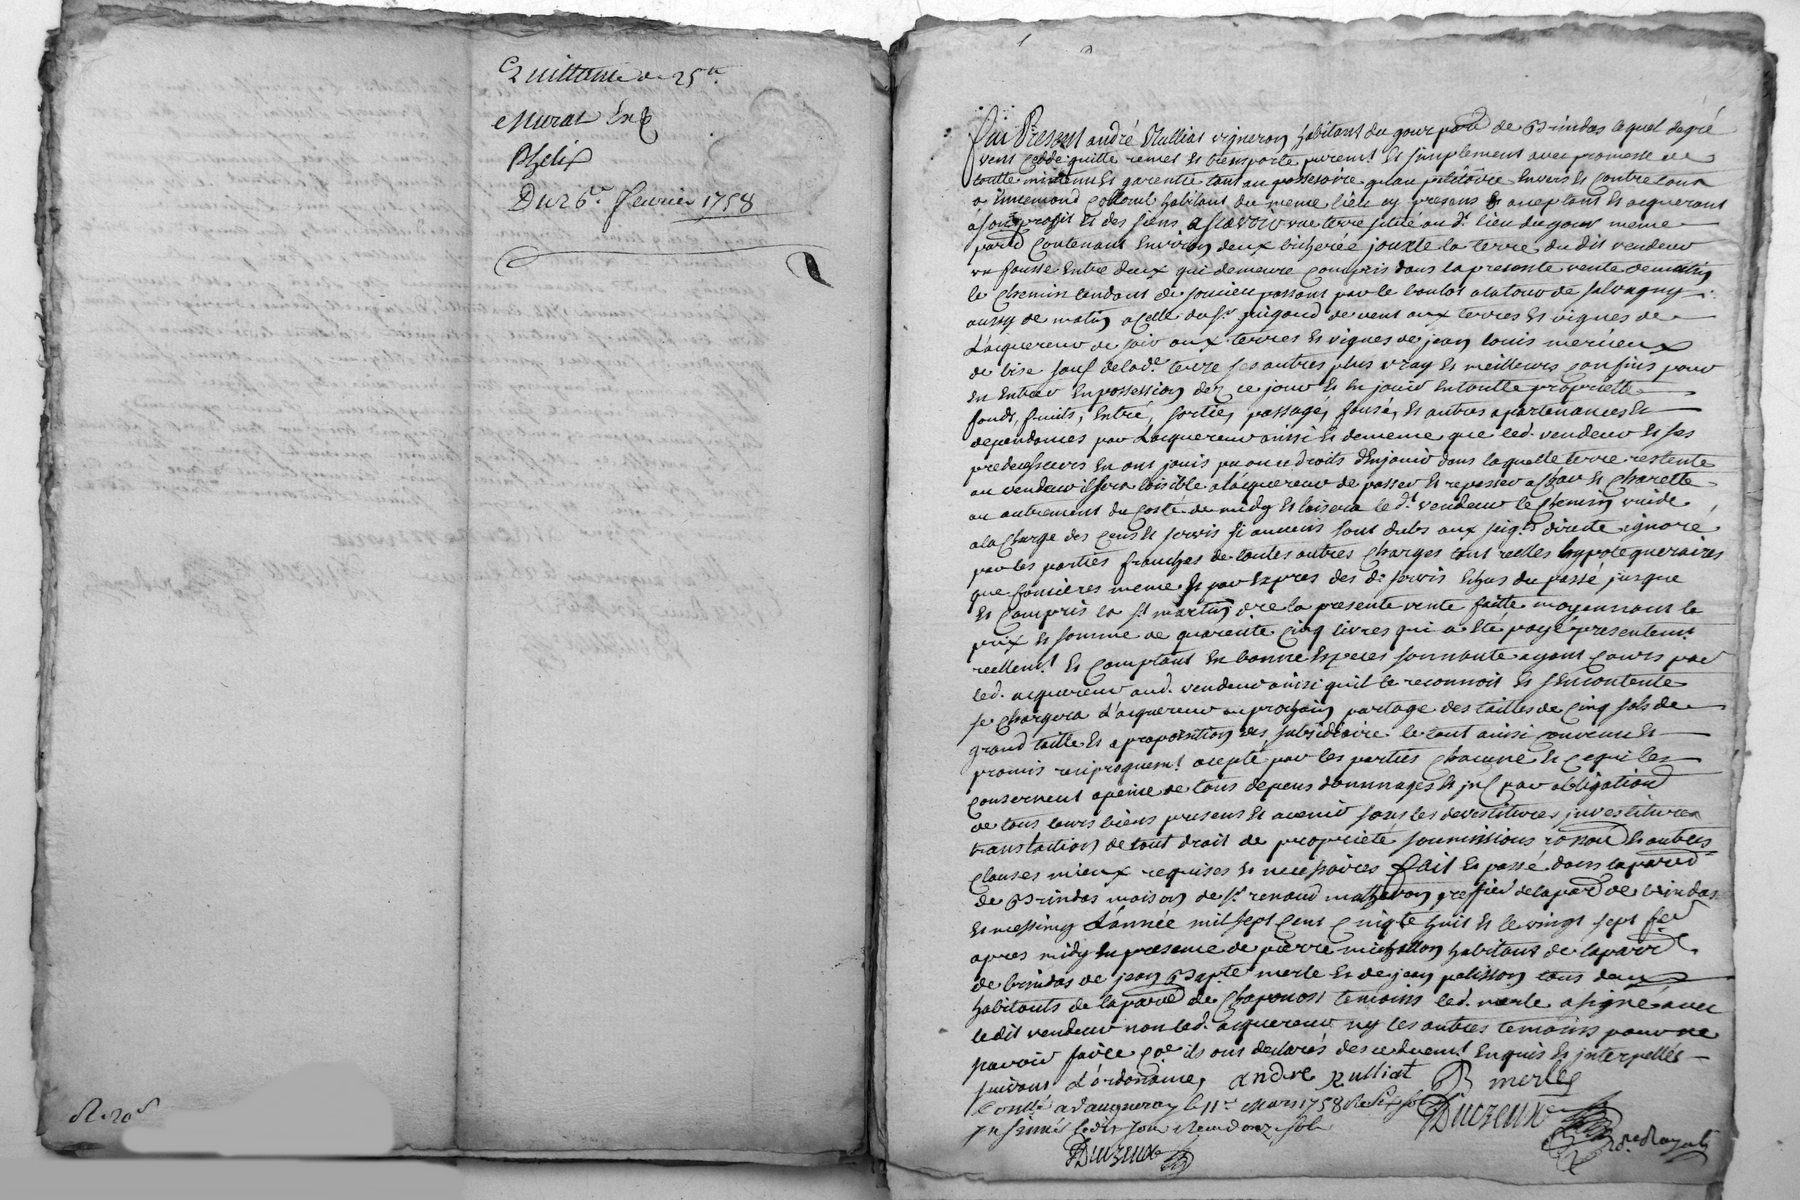 Quittance de 25 tt
Murat Exp
Phelix
Du 26e. fevrier 1758
R. 20 s
fut Present andré Rulliat vigneron habitant du gour parr de Brindas lequel de gré
vent cedde quitte remet et transporte purem.t et simplement avec promesse de
toutte maintenue et garentie tant au possessoire qu'au petitoire Envers et Contre tous
a Ennemond habitant du meme lieu cy present et aceptant et aquerant
a son profit et des siens, ascavoir une terre située aud.t lieu du gour meme
parr Contenant Environ deux bicherée jouxte la terre du dit vendeur
un fausse Entre deux qui demeure Compris dans la presente vente de matin
le Chemin tendant de soucieu passant par le boulot a la tour de salvagny
aussy de matin a Celle du sr. de vent aux terres et vignes de
L'aquereur de soir aux terres et vignes de jean louis merieux
de bise sauf de lad.e terre ses autres plus vray et meilleurs confins pour
En Entrer En possession dez ce jour et En jouir En toutte propriette
fonds, fruits, Entré, sortie, passage, fausé, et autres apartenances et
dependances par L'aquereur ainsi et de meme que led. vendeur et ses
predecesseurs En ont jouis pu ou eu droits d'En jouir dans laquelle terre restente
au vendeur il sera loisible a l'aquereur de passer et repasser a char et Charette
ou autrement du Costé de midy et laissera le d.t vendeur le Chemin vuide
a la Charge des Cens et servis si aucuns sont dubs aux seig.rs directe ignoré
par les parties franches de toutes autres Charges tant reelles hypotequeraires
que foncières meme et par Expres des d.t servis Echus du passé jusque
et Compris la st martin dre la presente vente faitte moyennant le
prix et somme de quarente Cinq livres qui a Eté payé presentem.t
reellem.t et Comptant En bonne Especes sonnante ayant Cours par
led. aquereur aud. vendeur ainsi qu'il le reconnoit et s'en contente
se Chargera L'aquereur au prochain partage des tailles de Cinq sols de
grand taille et a proportion des subsidiaire le tout ainsi convenu et
promis reciproquem.t acepté par les parties Chacune En Ce qui les
Concernent a peine de tous depens dommages et par obligation
de tous leurs biens presens et avenir sous les devestitures, investitures
translation de tout droit de propriété soumissions renon et autres
Clauses mieux requises et necessaires fait et passé dans la parr
de Brindas maison de sr. renaud matheron greffier de la parr de brindas
et messimy L'année mil sept Cent Cinqte huit et le vingt sept fer
apres midy En presence de pierre michallon habitant de la parr
de brindas de jean Bapte merle et de jean palisson tous deux
habitants de la parr de Chaponost temoins led. merle a signé avec
le dit vendeur non led. aquereur ny les autres temoins pour ne
scavoir faire Ce ils ont declarés de ce duem.t Enquis et interpellés
suivant L'ordonnance, andre Rulliat B merle
Conllé a vaugneray le 11e. Mars 1758
Duczeux